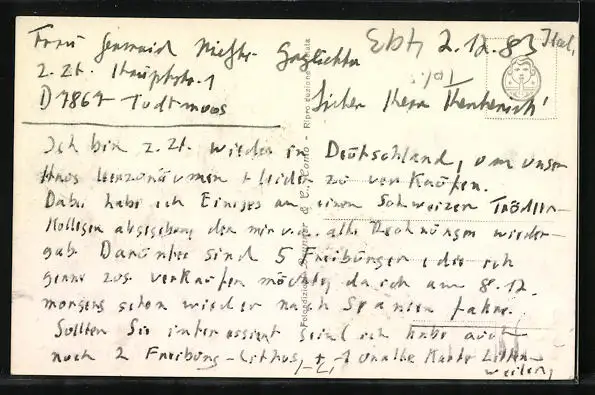 Frau Gertraud
Ebf 2.12.83 Ital.
z. Zt. Hauptstr. 1
D 7867 Todtmoos
Lieber Herr
Ich bin z. Zt. wieder in Deutschland, um unser
Haus leerzuräumen + leider zu verkaufen.
Dabei habe ich Einiges an einen Schweizer Trödler-
Kollegen abgegeben, der mir u.a. alte Rechnungen wieder-
gab. Darunter sind 5 Freiburger, die ich
gerne zus. verkaufen möchte, da ich am 8.12.
morgens schon wieder nach Spanien fahre.
Sollten Sie interessiert sein (ich habe auch
noch 2 Freiburg-Lithos, + 1 uralte Karte Litten-
weiler,
Fotoedizioni Brunner & C., Como - Riproduzione vietata